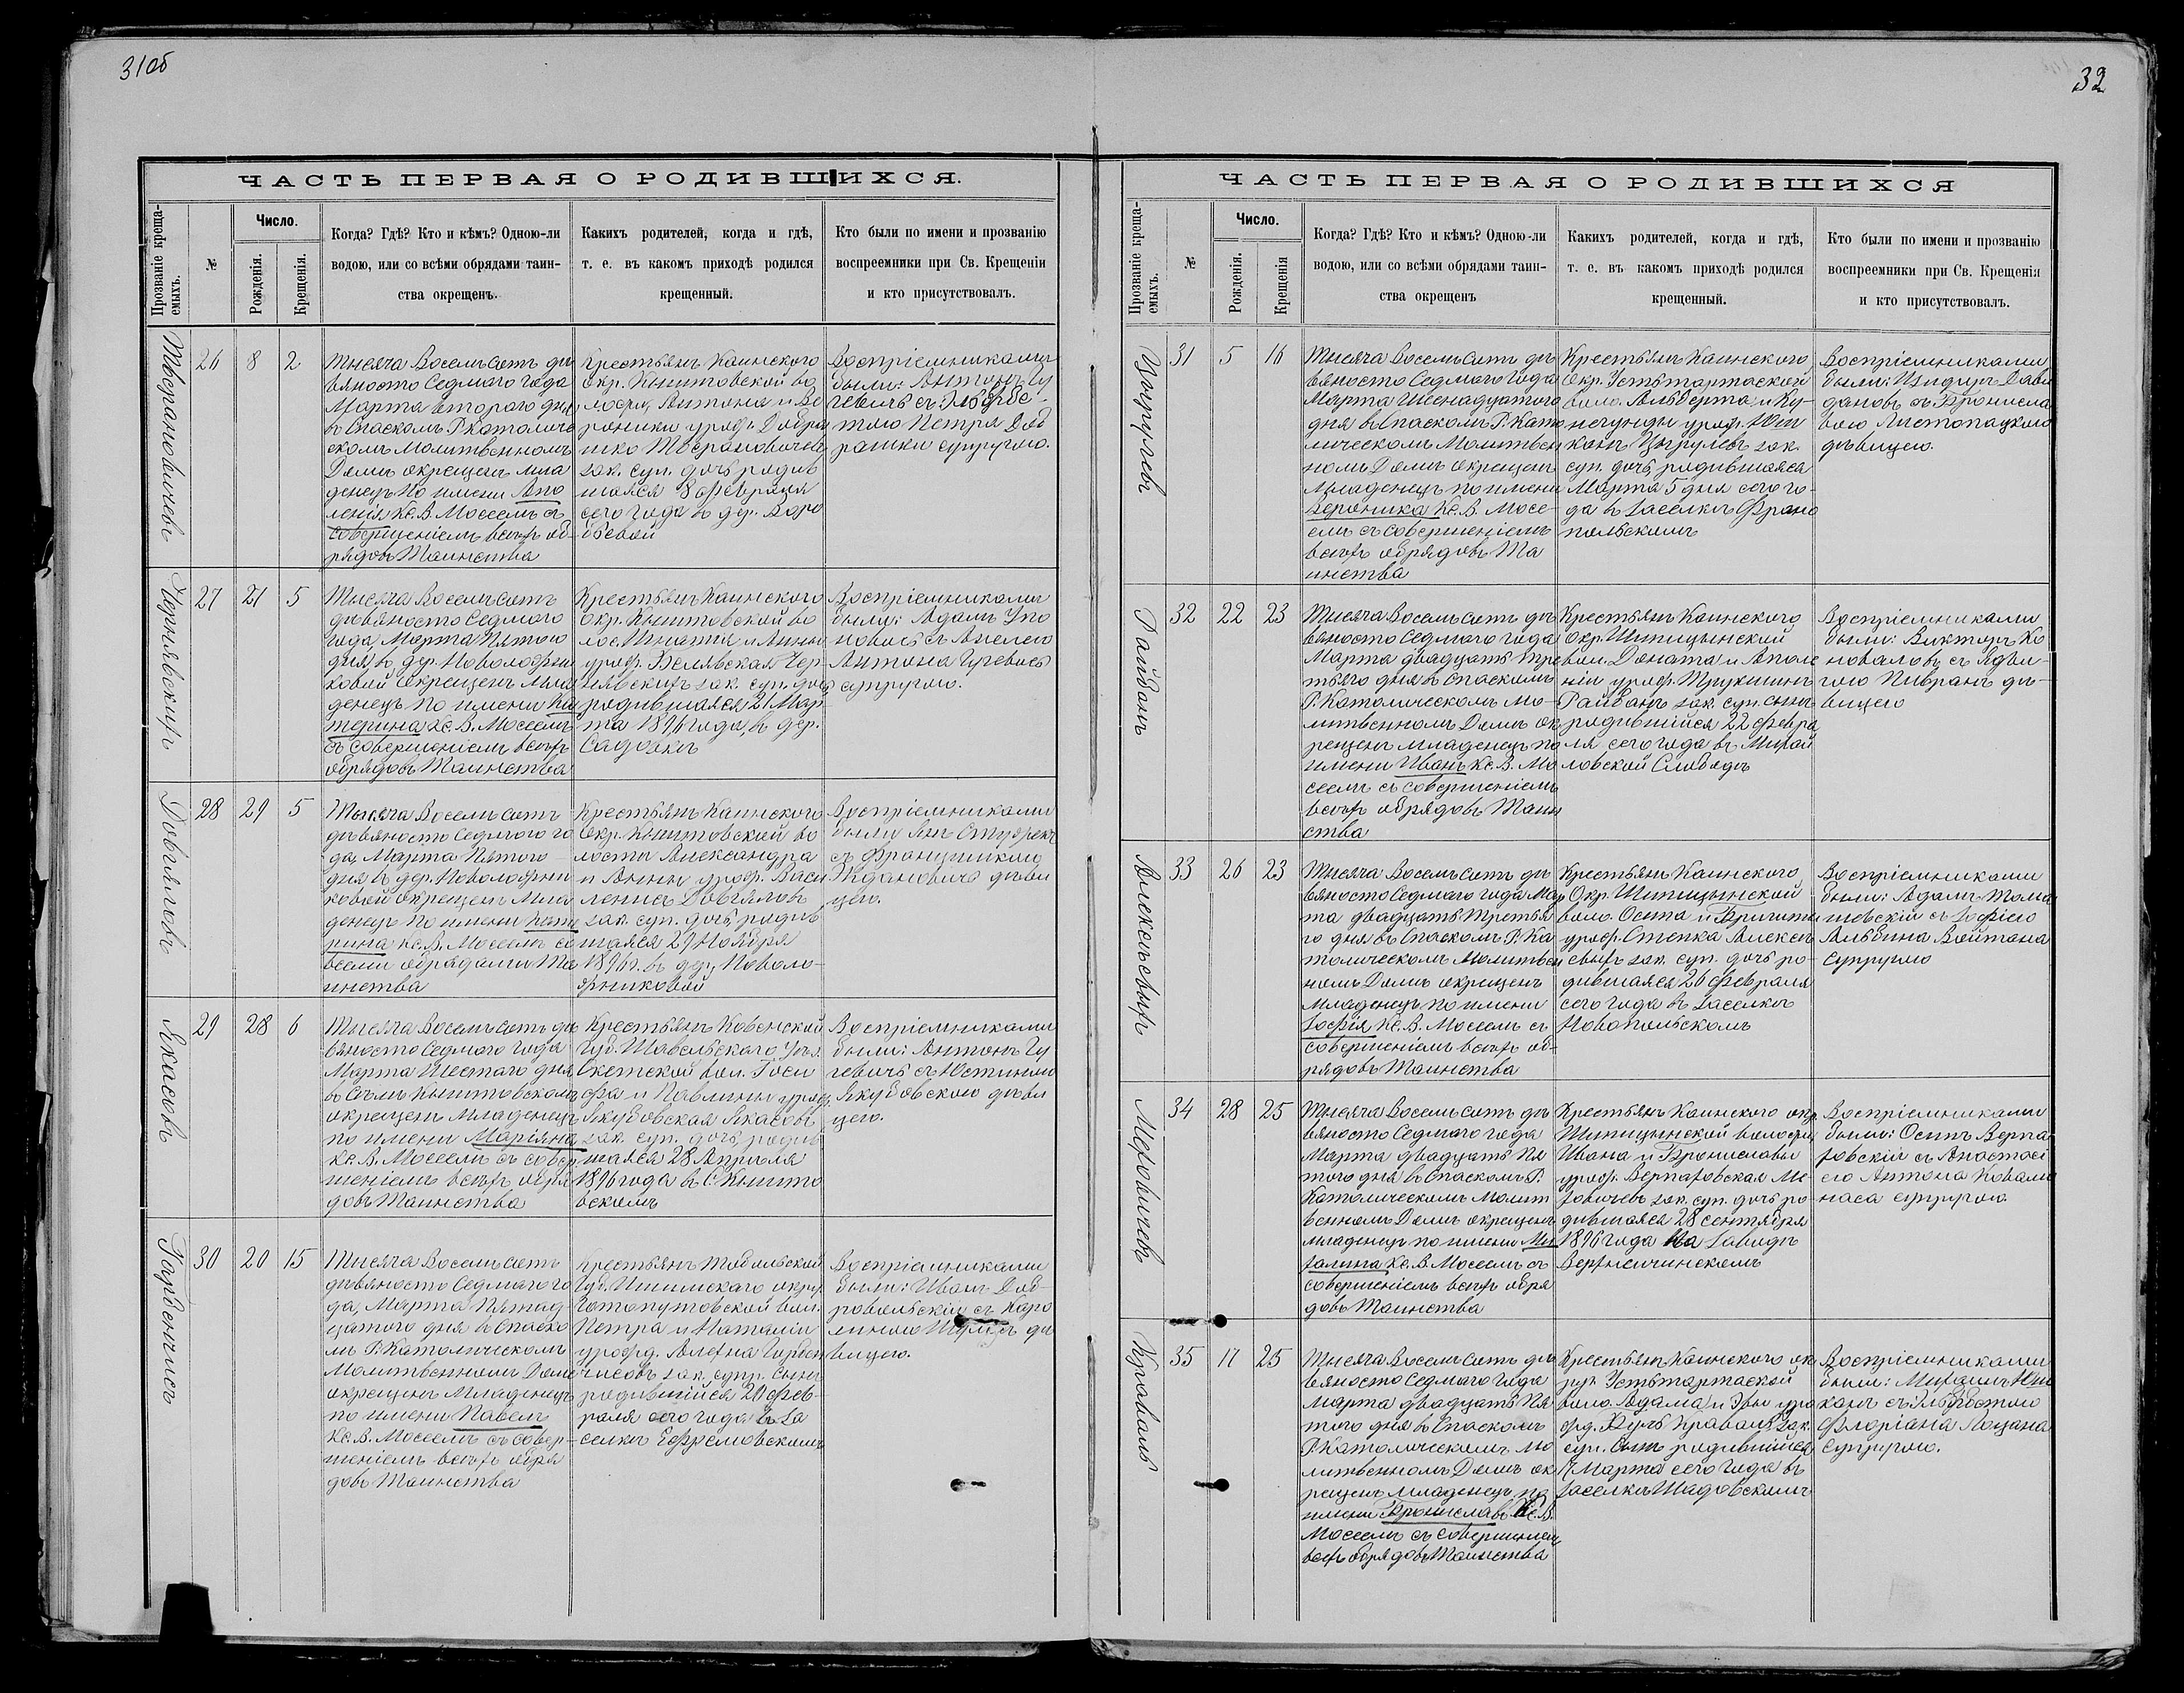 31об
ЧАСТЬ ПЕРВАЯ О РОДИВШИХСЯ.
Прозваніе креща-
емыхъ.
№
Число.
Рожденія.
Крещенія.
Когда? Гдѣ? Кто и кѣмъ? Одною-ли
водою, или со всѣми обрядами таин-
ства окрещенъ.
Какихъ родителей, когда и гдѣ,
т. е. въ какомъ приходѣ родился
крещенный.
Кто были по имени и прозванію
воспреемники при Св. Крещеніи
и кто присутствовалъ.
26 8 2
Тысяча Восемьсотъ де
вяносто Седмого года
Марта второго дня
въ Спаскомъ Р Католиче
скомъ Молитвенномъ
Домѣ окрещенъ мла
денецъ по имени Апо
лонія Кс. В. Моссемъ съ
совершеніемъ всѣхъ об-
рядовъ Таинства
Крестьянъ Каинского
Окр. Кыштовской во
лости, Антона и Ве
роники урожд. Добра
шко
зак. суп. дочь родив
шаяся 8 февраля
сего года въ дер. Воро
бьевой
Воспріемниками
были: Антонъ Гу
тою Петра Доб
рашки супругою.
27 21 5
Тысяча Восемьсотъ
девяносто Седмого
года, Марта Пятого
дня въ дер. Новолофин
ковой окрещенъ мла
денецъ по имени Ка
терина Кс. В. Моссемъ
съ совершеніемъ всѣхъ
обрядовъ Таинства
Крестьянъ Каинского
Окр. Кыштовской во
лос. Игнатія и Анны
родившаяся 21 Мар
та 1896 года, въ дер.
Садовкѣ
Воспріемниками
были: Адамъ
Антона
супругою.
Довгялловъ
28 29 5
Тысяча Восемьсотъ
девяносто Седмого го
да, Марта Пятого
дня въ дер. Новолофин
ковой окрещенъ Мла
денецъ по имени Кате
рина Кс. В. Моссемъ со
всеми обрядами Та
инства
Крестьянъ Каинского
Окр. Кыштовской во
лости Александра
и Анны урож. Васи
зак. суп. дочь родив
шаяся 29 Ноября
1896 г. въ дер. Новоло-
финковой
Воспріемниками
были
съ Францишкою
Ждановичъ дѣви
цею.
Якасовъ
29 28 6
Тысяча Восемьсотъ де
вяносто Седмого года
Марта Шестаго дня
въ Селѣ Кыштовскомъ
окрещенъ Младенецъ
по имени Маріяна
Кс. В. Моссемъ съ совер
шеніемъ всѣхъ обря
довъ Таинства
Крестьянъ Ковенской
Губ. Шавельского Уѣз.
Якубовская Якасовъ
зак. суп. дочь родив
шаяся 28 Апрѣля
1896 года въ С. Кышто
вскомъ
Воспріемниками
были: Антонъ Гу
Якубовскою дѣви
цею.
30 20 15
Тысяча Восемьсотъ
девяносто Седмого го
да, Марта Пятнад-
цатого дня въ Спаско
мъ Р. Католическомъ
Молитвенномъ Домѣ
окрещенъ Младенецъ
по имени Павелъ
Кс. В. Моссемъ съ совер-
шеніемъ всѣхъ обря
довъ Таинства
Крестьянъ Тобольской
Губ. Ишимскаго окру.
Готопутовской вол.
Петра и Наталіи
зак. супр. сынъ
родившійся 20 фев-
раля сего года въ За
селкѣ Ефремовскомъ
Воспріемниками
были: Иванъ Доб-
ровольскій съ Каро
дѣ
вицею.
32
ЧАСТЬ ПЕРВАЯ О РОДИВШИХСЯ
Прозваніе креща-
емыхъ.
№
Число.
Рожденія.
Крещенія
Когда? Гдѣ? Кто и кѣмъ? Одною-ли
водою, или со всѣми обрядами таин-
ства окрещенъ
Какихъ родителей, когда и гдѣ,
т. е. въ какомъ приходѣ родился
крещенный.
Кто были по имени и прозванію
воспреемники при Св. Крещенія
и кто присутствовалъ.
Цырулевъ
31 5 16
Тысяча Восемьсотъ де
вяносто Седмого года
Марта Шеснадцатого
дня въ Спаскомъ Р. Като
лическомъ Молитвен
номъ Домѣ окрещенъ
Младенецъ по имени
Вероника Кс. В. Мосс-
емъ съ совершеніемъ
всѣхъ обрядовъ Та
инства
Крестьянъ Каинского
Окр. Устьтартаской
воло. Альберта и Ку-
негунды урож. Юш
канъ Цырулевъ зак.
суп. дочь, родившаяся
Марта 5 дня сего го-
да въ Заселкѣ Франо
польскомъ
Воспріемниками
были: Изидоръ Дави
дановъ съ Бронисла
вою Листопацкою
дѣвицею.
Райванъ
32 22 23
Тысяча Восемьсотъ де
вяносто Седмого года
Марта двадцать тре
тьяго дня въ Спаскомъ
Р. Католическомъ Мо-
литвенномъ Домѣ ок
рещенъ младенецъ по
имени Иванъ Кс. В. Мо
ссемъ съ совершеніемъ
всѣхъ обрядовъ Таин
ства
Крестьянъ Каинского
Окр. Шипицынской
вол. Доната и Аполо
ніи урож. Трукшинъ
Райванъ зак. суп. сынъ
родившійся 22 февра
ля сего года въ Михай
ловской Слободѣ
Воспріемниками
были: Викторъ Ко
новаловъ съ Ядви-
гою Пивранъ дѣ-
вицею
33 26 23
Тысяча Восемьсотъ де
вяносто Седмого года Мар
та двадцать Третья
го дня въ Спаскомъ Р. Ка
толическомъ Молитвен
номъ Домѣ окрещенъ
Младенецъ по имени
Зофія Кс. В. Моссемъ съ
совершеніемъ всѣхъ об-
рядовъ Таинства
Крестьянъ Каинского
Окр. Шипицынской
воло. Осипа и Бригиты
урож. Степка Алексѣ
евыхъ зак. суп. дочь ро-
дившаяся 26 февраля
сего года въ Заселкѣ
Новопольскомъ
Воспріемниками
были: Адамъ Тома
шевскій съ Зофіею
Альбина Войтана
супругою
34 28 25
Тысяча Восемьсотъ де
вяносто Седмого года
Марта двадцать Пя
того дня въ Спаскомъ Р.
Католическомъ Молит
венномъ Домѣ окрещенъ
младенецъ по имени Ми
халина Кс. В. Моссемъ съ
совершеніемъ всѣхъ обря
довъ Таинства
Крестьянъ Каинского окр.
Шипицынской волости
Ивана и Брониславы
зак. суп. дочь ро-
дившаяся 28 сентября
1896 года на Заводѣ
Воспріемниками
были: Осипъ
съ Анастасі
ею Антона Ковали
наса супругою
Краваль
35 17 25
Тысяча Восемьсотъ де
вяносто Седмого года
Марта двадцать Пя
того дня въ Спаскомъ
Р Католическомъ Мо
литвенномъ Домѣ ок
рещенъ младенецъ по
имени Брониславъ Кс. В.
Моссемъ съ совершеніемъ
всѣхъ обрядовъ Таинства
Крестьянъ Каинского ок
руг. Устьтартаской
воло. Адама и Эвы уро
жд. Кравалъ зак.
суп. сынъ родившійся
17 Марта сего года въ
Заселкѣ Шадовскомъ
Воспріемниками
были: Михаилъ Юш
канъ съ
Флоріана Лоцана
супругою.